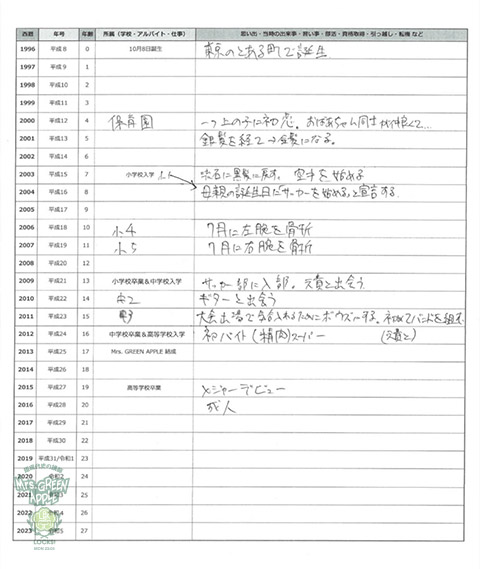 西暦 年号 年齢 所属（学校・アルバイト・仕事） 思い出・当時の出来事・習い事・部活・資格取得・引っ越し・転機 など
1996 平成8 0 10月8日誕生 東京のとある町で誕生
1997 平成9 1
1998 平成10 2
1999 平成11 3
2000 平成12 4 保育園 一つ上の子に初恋。おばあちゃん同士が仲良くて…
2001 平成13 5 銀髪を経て→金髪になる。
2002 平成14 6
2003 平成15 7 小学校入学 小1 流石に黒髪に戻す。空手を始める
2004 平成16 8 母親の誕生日に「サッカーを始める」と宣言する
2005 平成17 9
2006 平成18 10 小4 7月に左腕を骨折
2007 平成19 11 小5 7月に右腕を骨折
2008 平成20 12
2009 平成21 13 小学校卒業＆中学校入学 サッカー部に入部。元貴と出会う
2010 平成22 14 中2 ギターと出会う
2011 平成23 15 大会出場で気合入れるためにボウズにする。初めてバンドを組む
2012 平成24 16 中学校卒業＆高等学校入学 初バイト（精肉）スーパー （元貴と）
2013 平成25 17 Mrs. GREEN APPLE 結成
2014 平成26 18
2015 平成27 19 高等学校卒業 メジャーデビュー
2016 平成28 20 成人
2017 平成29 21
2018 平成30 22
2019 平成31/令和1 23
2020 令和2 24
2021 令和3 25
2022 令和4 26
2023 令和5 27
Mrs. GREEN APPLE
LOCKS!